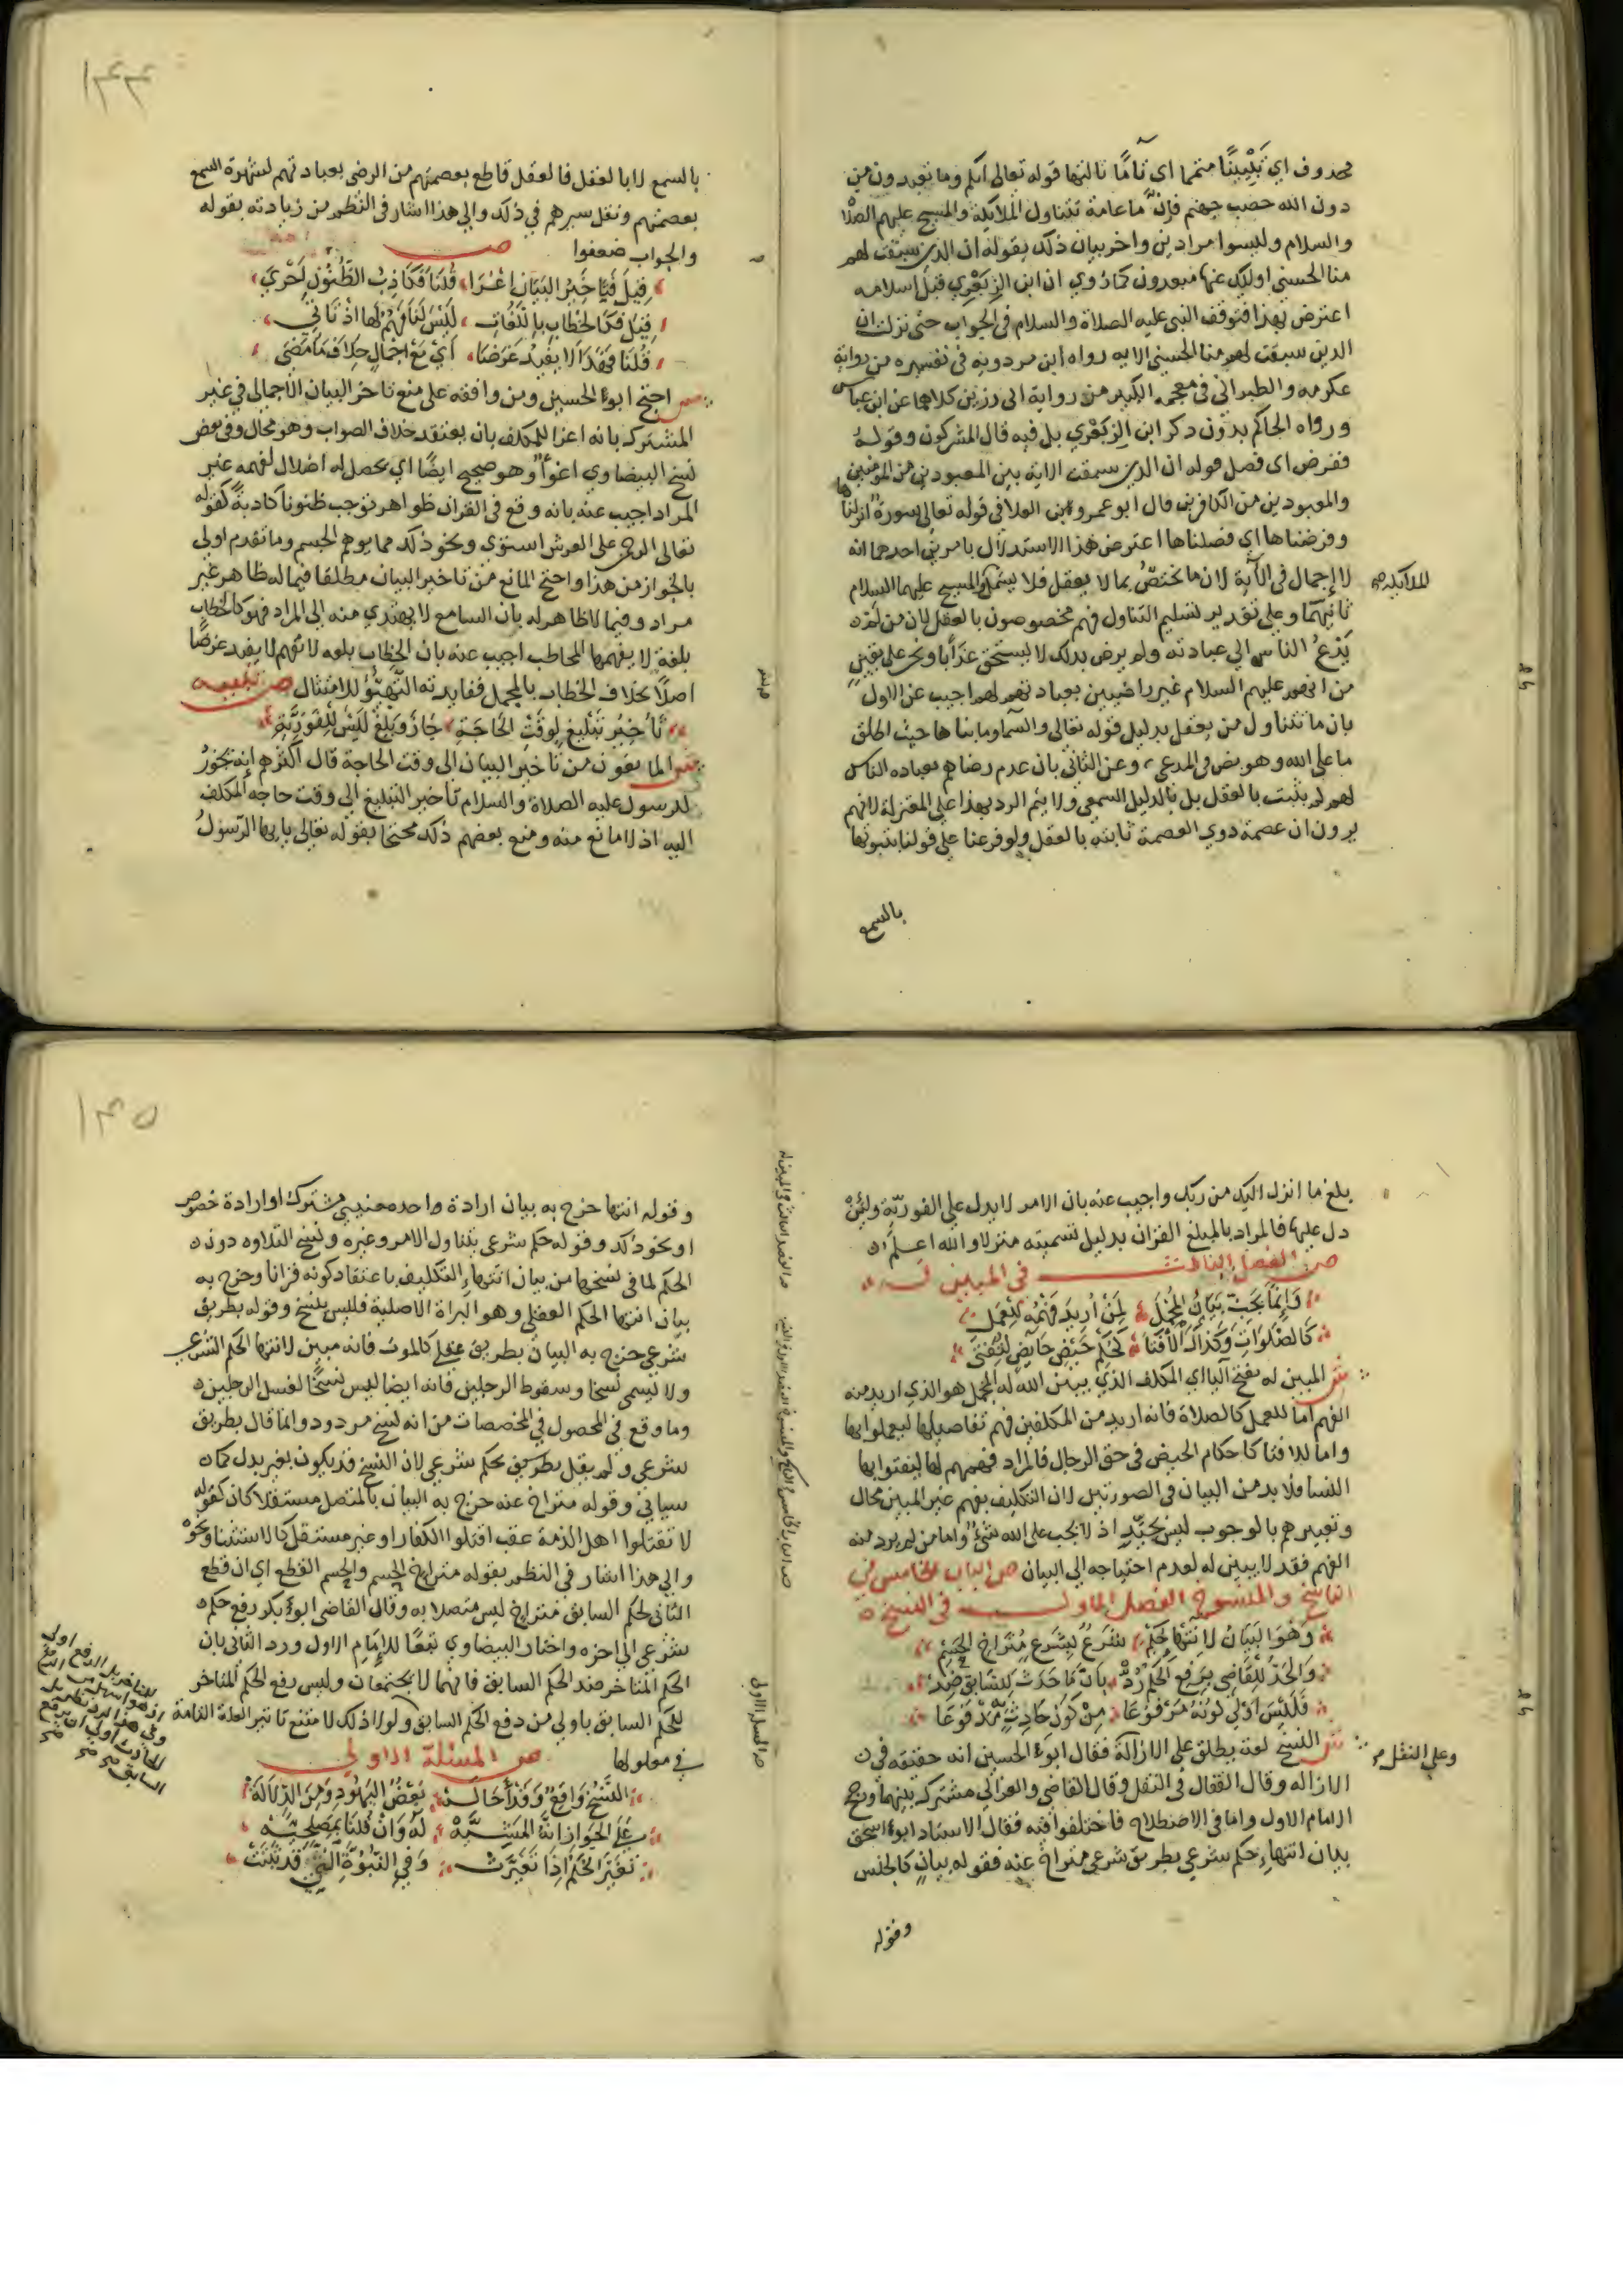 محذوف اي تبيينًا متمما اي تامًّا ثالثها قوله تعالى انكم وما تعبدون من
دون الله حصب جهنم فإنّ ما عامة تتناول الملائكة والمسيح عليهم الصلاة
والسلام وليسوا مرادين واخر بيان ذلك بقوله ان الذين سبقت لهم
منا الحسنى اوليك عنها مبعدون كما رُوي ان ابن الزِبَعْرِي قبل اسلامه
اعترض بهذا فتوقف النبي عليه الصلاة والسلام في الجواب حتى نزلت ان
الذين سبقت لهم منا الحسنى الايه رواه ابن مردويه في تفسيره من رواية
عكرمه والطبراني في معجمه الكبير من رواية ابى رزين كلاهما عن ابن عباس
ورواه الحاكم بدون ذكر ابن الزبَعْرِي بل فيه قال المشركون وقولهُ
ففرض اى فصل قوله ان الذين سبقت الاية بين المعبودين من المؤمنين
والمعبودين من الكافرين قال ابو عمرو بن العلا في قوله تعالى سورة انزلناها
وفرضناها اي فصلناها اعترض هذا الاستدلال بامرين احدهما انه
لا إجمال في الآية لان ما تختصّ بما لا يعقل فلا يشمل والمسيح عليهما السلام
الملائكة صح
ثانيهما وعلى تقدير تسليم التناول فهم مخصوصون بالعقل لان من لم
يَدْعُ الناس الي عبادته ولم يرض بذلك لا يستحق عذابًا ونحن على يقينٍ
من انهم عليهم السلام غير راضيين بعبادتهم لهم اجيب عن الاول
بان ما تتناول من يعقل بدليل قوله تعالى والسماء وما بناها حيث اطلق
ما على الله وهو نص في المدعى، وعن الثاني بان عدم رضاهم بعباده الناس
لهم لم يثبت بالعقل بل بالدليل السمعي ولا يتم الرد بهذا على المعتزلة لانهم
يرون ان عصمة ذوي العصمة ثابته بالعقل ولو فرعنا على قولنا بثبوتها
بالسمع
١٤٤
بالسمع لا بالعقل فالعقل قاطع بعصمتهم من الرضى بعبادتهم لشهرة السمع
بعصمتهم ونقل سيرهم في ذلك والي هذا اشار في النظم من زيادته بقوله
والجواب ضعفوا ص
قِيلَ فَتَأخِيرُ البَيَانِ اغْرَا، قُلنَا فَكَاذِبُ الظُّنُونِ أَحْرَي،
قِيلَ فَكَالخِطَابِ بِاللُغَاتِ، لَيْسَ لَنَا فَهْمٌ لَهَا اذْ تَاتِي،
قُلْنَا فَهَذَا لا يُفِيدُ غَرَضَا، أيْ مَعَ اجْمَالٍ خِلافَ مَا مَضَى،
ش احتج ابو الحسين ومن وافقه على منع تاخر البيان الاجمالي في غير
المشترك بانه اغرا للمكلف بان يعتقد خلاف الصواب وهو محال وفي بعض
نسخ البيضاوي اغوأ وهو صحيح ايضًا اي يحصل له اضلال لفهمه غير
المراد اجيب عنه بانه وقع في القران ظواهر توجب ظنونا كاذبةً كقوله
تعالى الرحمن على العرش استوَي ونحو ذلك مما يوهم الجسم وما تقدم اولى
بالجواز من هذا واحتج المانع من تاخير البيان مطلقا فيما له ظاهر غير
مراد وفيما لا ظاهر له بان السامع لا يهتدي منه الى المراد فهو كالخطاب
بلغة لا يفهمها المخاطب اجيب عنه بان الخطاب بلغه لا تفهم لا يفيد غرضًا
اصلًا بخلاف الخطاب بالمجمل ففايدته التَهَيُّؤ للامتثال ص تنبيه
تَأخِيرُ تَبْلِيغٍ لِوَقْتِ الحَاجَةِ، جَازَ وَبَلِّغْ لَيْسَ لِلفَوْرِيَّةِ،
ش المانعون من تاخير البيان الى وقت الحاجة قال اكثرهم إنه يجُوزُ
للرسول عليه الصلاة والسلام تأخير التبليغ الى وقت حاجه المكلف
اليه اذ لا مانع منه ومنع بعضهم ذلك محتجا بقوله تعالى يا ايها الرسولُ
بلغ ما انزل اليك من ربك واجيب عنه بان الامر لا يدل على الفوريّة ولئنْ
دل عليها فالمراد بالمبلغ القران بدليل تسميته منزلا والله اعلمُ
ص الفصل الثالث في المبين له
وَإِنَّمَا يَجِبُ بَيَانُ المُجْمَلِ، لِمَنْ اُرِيدَ فَهْمُهُ لِلعَمَلِ
كَالصَّلَوَاتِ وَكَذَاكَ الأفْتَا، كَحُكْمِ حَيْضِ حَايِضٍ لِيُفْتَى،
ش المبين له بفتح اليا اي المكلف الذي يبين الله له المجمل هو الذي اريد منه
الفهم اما للعمل كالصلاة فانه اريد من المكلفين فهم تفاصيلها ليعملوا بها
واما للافتا كاحكام الحيض في حق الرجال فالمراد فهمهم لها ليفتوا بها
النسا فلا بد من البيان في الصورتين لان التكليف بفهم غير المبين محال
وتعبيرهم بالوجوب ليس بجيّدٍ اذ لا يجب على الله شئٌ واما من لم يرد منه
الفهم فقد لا يبين له لعدم احتياجه الى البيان ص الباب الخامس في
الناسخ والمنسوخ الفصل الاول في النسخ
وَهُوَ البَيَانُ لانْتِهَا حُكْمِ، شَرْعٌ لِشَرْعٍ مُتَرَاخِ الجِسْمِ،
وَالحَدُّ لِلقَاضِي بِرَفْعِ الحُكْمِ رُدَّ، بِانَّ مَا حَدَثَ لِلسَابِقِ ضِدّ،
فَلَيْسَ أوْلَى كَوْنُهُ مَرْفُوعَا، مِنْ كَوْنِ حَادِثٍ مَّدْفُوعَا
ش النسخ لغة يطلق على الازالة فقال ابو الحسين انه حقيقه في
وعلى النقل صح
الازاله وقال القفال في النقل وقال القاضي والغزالي مشترك بينهما ورجح
الامام الاول واما في الاصطلاح فاختلفوا فيه فقال الاستاد ابو اسحق
بيان انتهاءِ حكم شرعي بطريق شرعي متراخ عنه فقوله بيان كالجنس
وقوله
١٤٥
وقوله انتها خرج به بيان ارادة واحده معنيى مشترك او ارادة خصوص
او نحو ذلك وقوله حكم شرعى يتناول الامر وغيره ونسخ التلاوه دون
الحكم لما في نسخها من بيان انتهاءِ التكليف باعتقاد كونه قرانا وخرج به
بيان انتها الحكم العقلي وهو البراة الاصلية فليس بنسخ وقوله بطريق
شرعي خرج به البيان بطريق عقلى كالموت فانه مبين لانتها الحكم الشرعي
ولا يسمى نسخا وسقوط الرجلين فانه ايضا ليس نسخًا لغسل الرجلين
وما وقع في المحصول في المخصصات من انه نسخ مردود وانما قال بطريق
شرعي ولم يقل بطريق بحكم شرعي لان النسخ قد يكون بغير بدل كما
سياتي وقوله متراخ عنه خرج به البيان بالمتصل مستقلا كان كقوله
لا تقتلوا اهل الذمة عقب اقتلوا الكفار او غير مستقل كالاستثنا ونحوْ
والي هذا اشار في النظم بقوله متراخِ الجسم والجسم القطع اي ان قطع
الثاني لحكم السابق متراخ ليس متصلا به وقال القاضي ابو بكر رفع حكم
شرعى الى اخره واختار البيضاوي تبعًا للإمام الاول ورد الثاني بان
الحكم المتاخر ضد الحكم السابق فانهما لا يجتمعان وليس رفع الحكم المتاخر
للحكم السابق باولي من دفع الحكم السابق ولولا ذلك لامتنع تاثير العلة التامة
في معلولها ص المسئلة الاولى
النَّسْخُ وَاقِعٌ وَقَدْ أحَالَهْ، بَعْضُ اليَهُودِ وَمِنَ الدَّلَالَهْ،
عَلَى الجَوَازِ انَّهُ المَشِيَّهْ، لَهُ وَانْ قُلْنَا بِمَصْلَحِيَّهْ،
تَغَيُّرَ الحُكْمِ اِذَا تَغَيَّرَتْ، وَفِي النُبُوَّةِ الَّتِي قَدْ ثَبَتَتْ